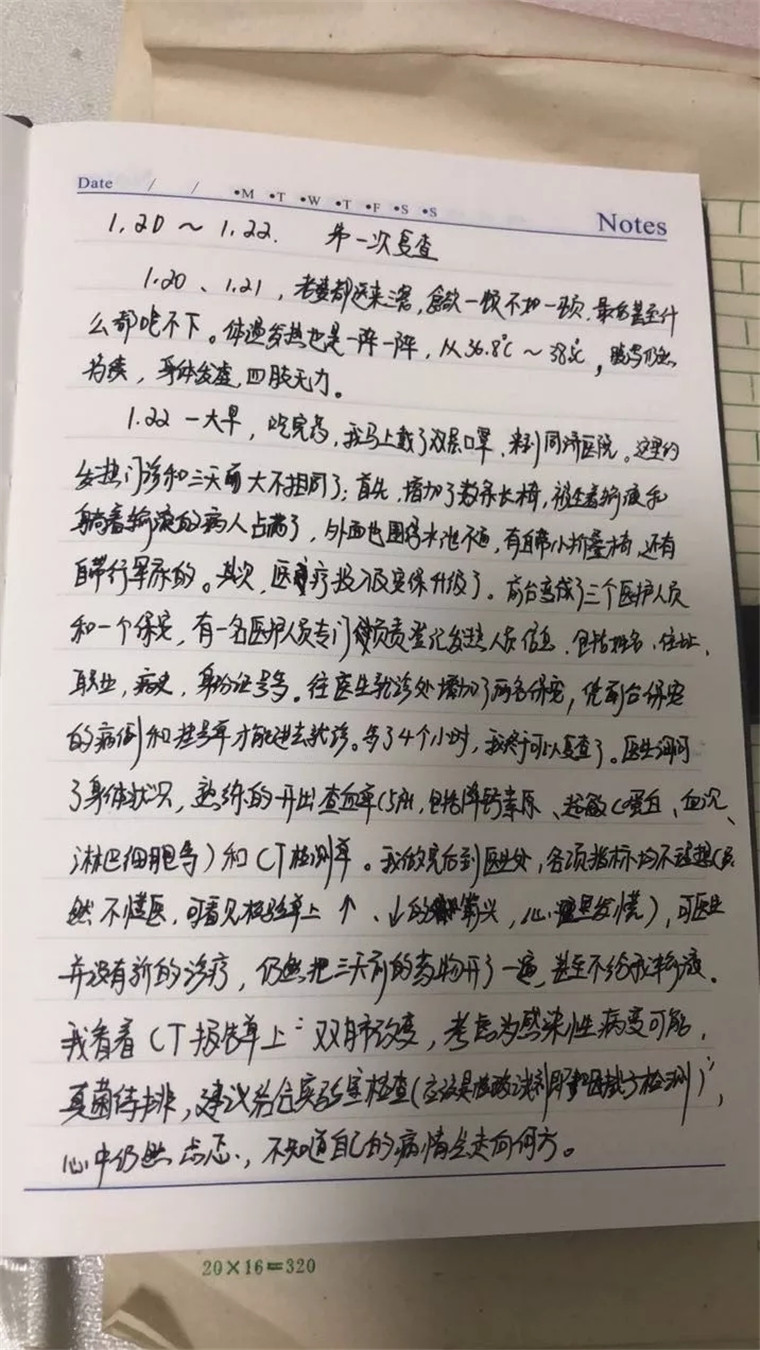 Date / / •M •T •W •T •F •S •S
Notes
1.20 ~ 1.22. 第一次复查
1.20、1.21,老婆都送来三餐,食欲一顿不如一顿,最后甚至什
么都吃不下。体温发热也是一阵一阵,从36.8℃~38.5℃,腹泻仍然
持续,身体发虚,四肢无力。
1.22 一大早,吃完药,我马上戴了双层口罩,来到同济医院。这里的
发热门诊和三天前大不相同了:首先,增加了数条长椅,被坐着输液和
躺着输液的病人占满了,外面也围得水泄不通,有自带小折叠椅,还有
自带行军床的。其次,医疗投入及安保升级了。前台变成了三个医护人员
和一个保安,有一名医护人员专门负责登记发热人员信息,包括姓名、住址、
职业,病史,身份证号等。往医生就诊处增加了两名保安,凭前台保安
的病例和挂号单才能进去就诊。等了4个小时,我终于可以复查了。医生询问
了身体状况,熟练的开出查血单(5月,包括降钙素原、超敏C蛋白、血沉、
淋巴细胞等)和CT检测单。我做完后到医生处,各项指标均不理想(虽
然不懂医,可看见检验单上↑、↓的箭头,心里发慌),可医生
并没有新的诊疗,仍然把三天前的药物开了一遍,甚至不给我输液。
我看着CT报告单上“双肺改变,考虑为感染性病变可能,
真菌待排,建议结合实验室检查(应该是核酸试剂即咽拭子检测)”,
心中仍然忐忑,不知道自己的病情会走向何方。
20×16=320